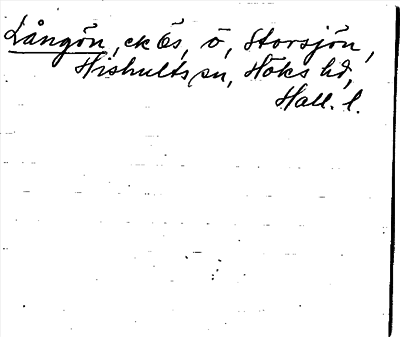 Långön, ek Ös, ö, Storsjön,
Hishults sn, Höks hd,
Hall. l.